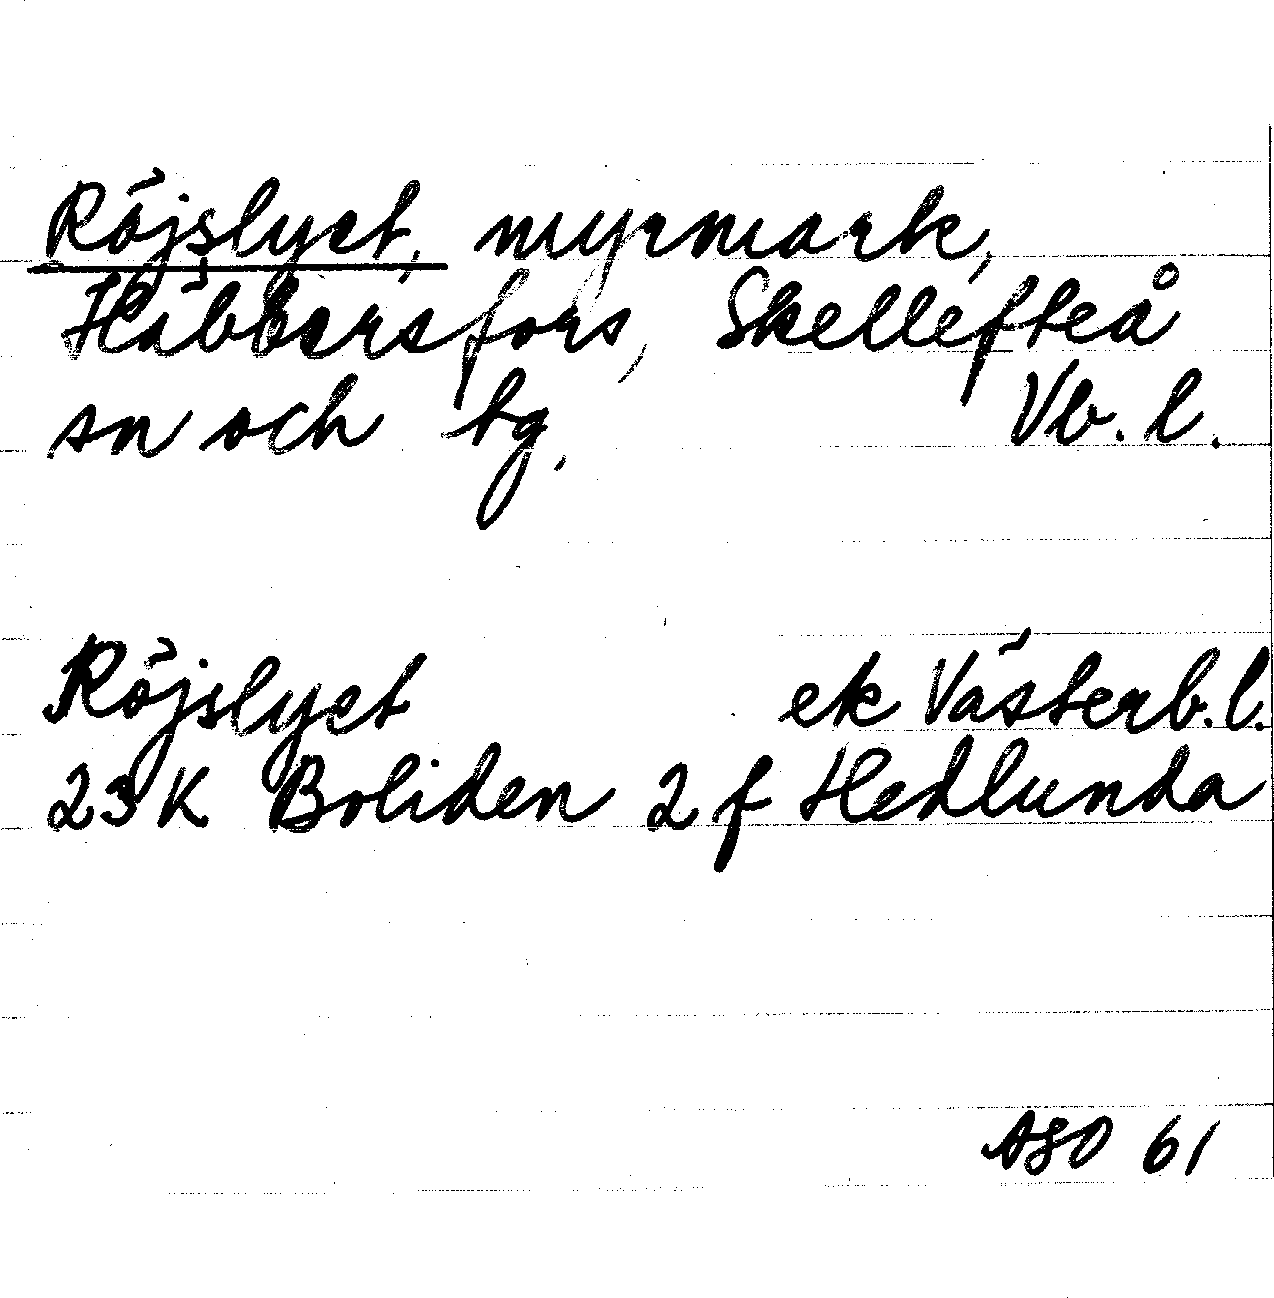 Röjslyct, myrmark,
Häbbersfors, Skellefteå
sn och tg, Vb. l.
Röjslyct ek Västerb.l.
23K Boliden 2 f Hedlunda
ASO 61